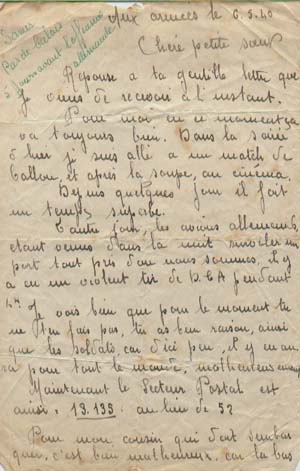 Pas-de-Calais
5 jours avant l'offensive
allemande
Aux armées le 6.5.40
Chère petite sœur
Réponse a ta gentille lettre que
je viens de recevoir a l'instant.
Pour moi en ce moment ça
va toujours bien. Dans la soirée
d'hier je suis allé a un match de
ballon, et après la soupe, au cinéma.
Depuis quelques jour il fait
un temps superbe.
L'autre jour, les avions allemands,
etant venus dans la nuit survoler un
port tout près d'ou nous sommes, il y
a eu un violent tir de D.C.A pendant
4H
Je vois bien que pour le moment tu
ne t'en fais pas, tu as bien raison, ainsi
que les soldats, car d'ici peu, il y en au
ra pour tout le monde, malheureusement
Maintenant le Secteur Postal est
ainsi : 13.135 au lieu de 52
Pour mon cousin qui doit s'embar
quer, c'est bien malheureux, car la bas